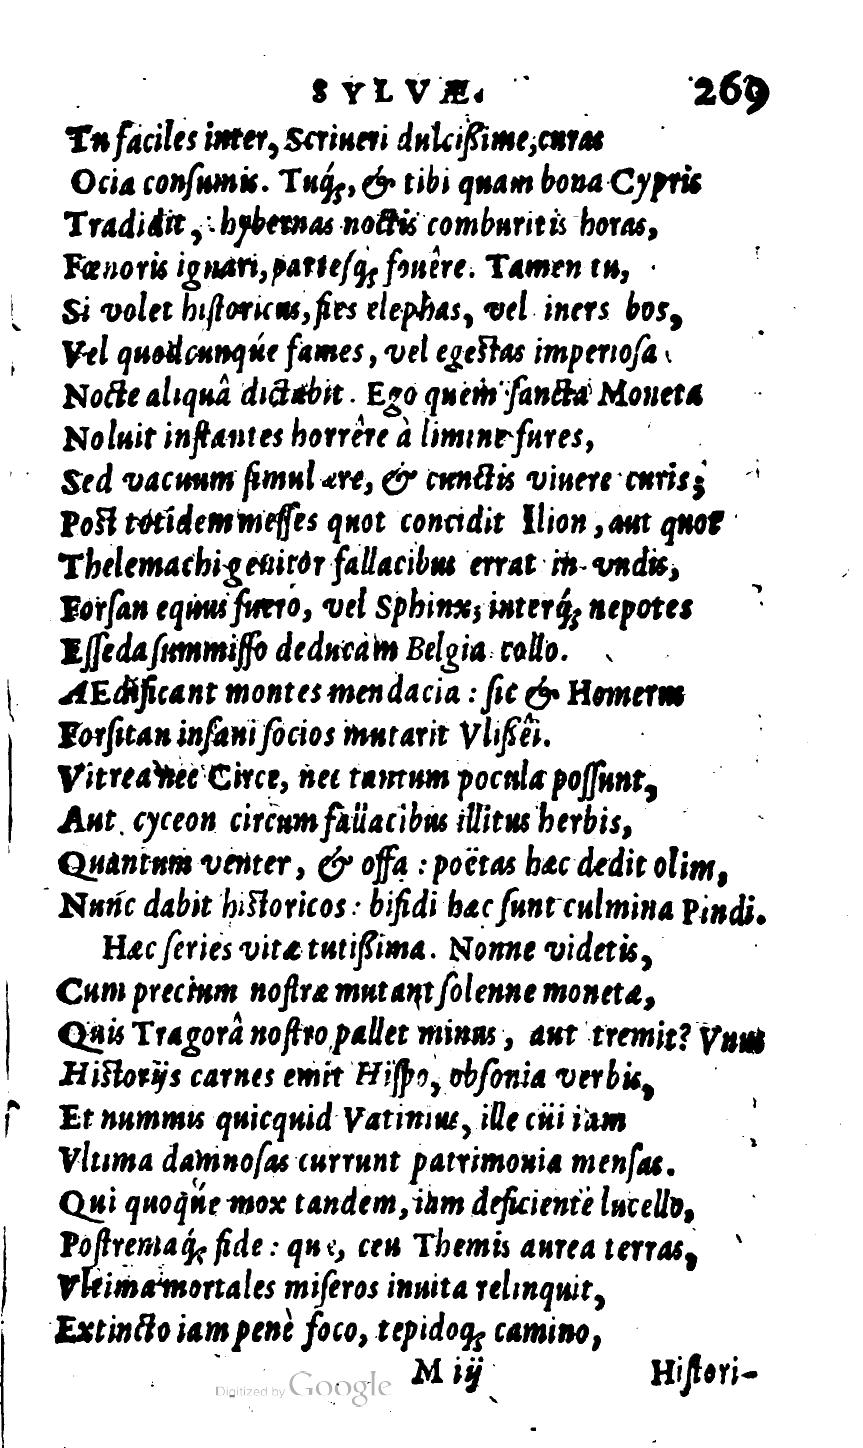 SYLVÆ. 269
Tu faciles inter, Scriueri dulcißime, curas
Ocia consumis. Tuq́;, & tibi quam bona Cypris
Tradidit, hybernas noctis comburitis horas,
Fœnoris ignari, partesq́; fouêre. Tamen tu,
Si volet historicus, fies elephas, vel iners bos,
Vel quodcunqúe fames, vel egestas imperiosa
Nocte aliquâ dictabit. Ego quem sancta Moneta
Noluit instantes horrêre à limine fures,
Sed vacuum simul ære, & cunctis viuere curis;
Post totidem messes quot concidit Ilion, aut quot
Thelemachi genitor fallacibus errat in vndis,
Forsan equus fuero, vel Sphinx; interq́; nepotes
Esseda summisso deducam Belgia collo.
AEdificant montes mendacia: sic & Homerus
Forsitan insani socios mutarit Vlißêi.
Vitrea nec Circe, nec tantum pocula possunt,
Aut cyceon circum fallacibus illitus herbis,
Quantum venter, & offa: poëtas hæc dedit olim,
Nunc dabit historicos: bifidi hæc sunt culmina Pindi.
Hæc series vitæ tutißima. Nonne videtis,
Cum precium nostræ mutant solenne monetæ,
Quis Tragorâ nostro pallet minus, aut tremit? Vnus
Historijs carnes emit Hispo, obsonia verbis,
Et nummis quicquid Vatinius, ille cüi iam
Vltima damnosas currunt patrimonia mensas.
Qui quoqúe mox tandem, iam deficiente lucello,
Postremaq́; fide: quæ, ceu Themis aurea terras,
Vltima mortales miseros inuita relinquit,
Extincto iam penè foco, tepidoq; camino,
M iij Histori-
Digitized by Google